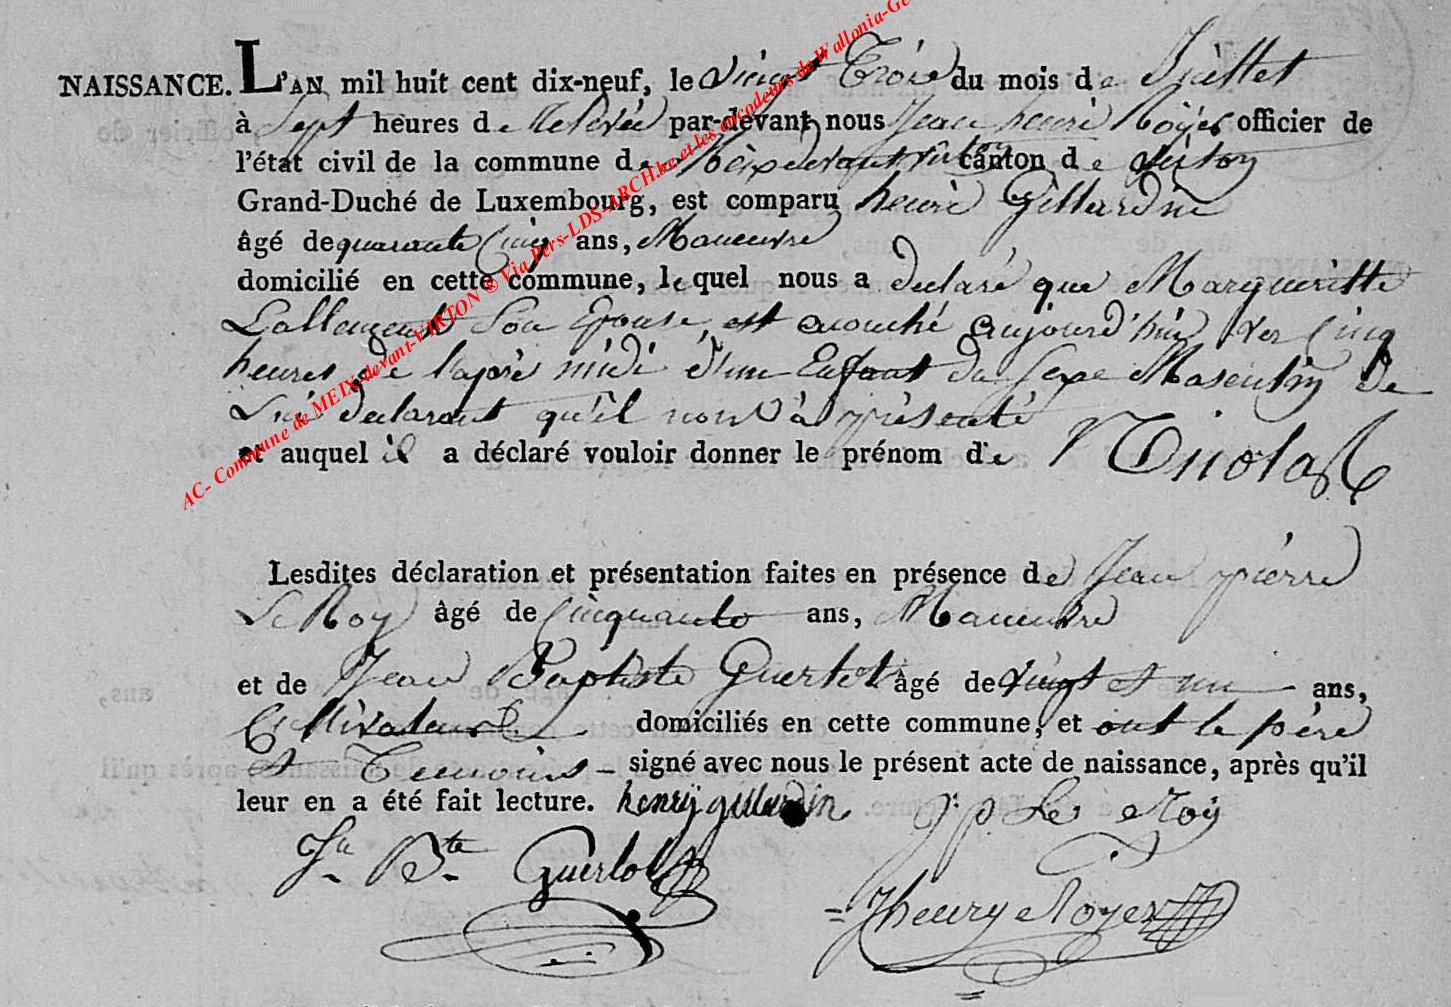 NAISSANCE. L'AN mil huit cent dix-neuf, le vingt Trois du mois de Juillet
à Sept heures de Relevée par-devant nous Jean henri Royer officier de
l'état civil de la commune de Meix devant virton canton de virton
Grand-Duché de Luxembourg, est comparu henri Gillardin
âgé de quarante Cinq ans, Maneuvre
domicilié en cette commune, lequel nous a declaré que Margueritte
Lallemant Son Epouse, est acouché aujourd'hui ver Cinq
heures de l'aprè midi d'un Enfant du Sexe Masculin De
Lui declarant qu'il nous à présenté
et auquel il a déclaré vouloir donner le prénom de Nicolas
Lesdites déclaration et présentation faites en présence de Jean pierre
Le Roy âgé de Cinquante ans, Maneuvre
et de Jean Baptiste Guertot âgé de vingt et un ans,
Cultivateur domiciliés en cette commune, et ont le pére
et Temoins signé avec nous le présent acte de naissance, après qu'il
leur en a été fait lecture. henrÿ gillardin J. p. Le Roÿ
Jn Bte Guertot
Jhenry Royer
AC- Commune de MEIX-devant-VIRTON ® Via Pers-LDS-ARCH.be et les encodeurs de Wallonia-Ge